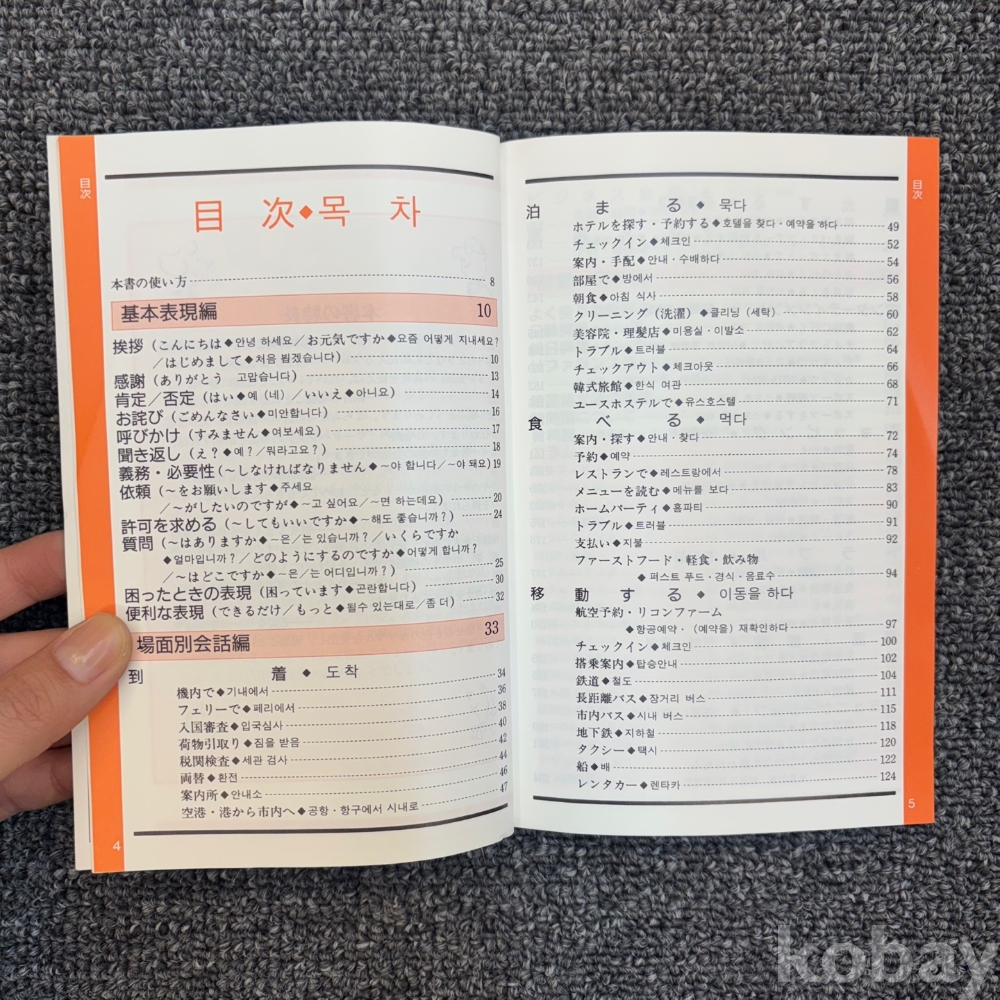 目次
目 次◆목 차
本書の使い方 8
基本表現編 10
挨拶(こんにちは◆안녕 하세요/お元気ですか◆요즘 어떻게 지내세요?
/はじめまして◆처음 뵙겠습니다) 10
感謝(ありがとう 고맙습니다) 13
肯定/否定(はい◆예(네)/いいえ◆아니요) 14
お詫び(ごめんなさい◆미안합니다) 16
呼びかけ(すみません◆여보세요) 17
聞き返し(え?◆예?/뭐라고요?) 18
義務・必要性(〜しなければなりません◆〜야 합니다/〜야 돼요) 19
依頼(〜をお願いします◆주세요
/〜がしたいのですが◆〜고 싶어요/〜면 하는데요) 20
許可を求める(〜してもいいですか◆〜해도 좋습니까?) 24
質問(〜はありますか◆〜은/는 있습니까?/いくらですか
◆얼마입니까?/どのようにするのですか◆어떻게 합니까?
/〜はどこですか◆〜은/는 어디입니까?) 25
困ったときの表現(困っています◆곤란합니다) 30
便利な表現(できるだけ/もっと◆될수 있는대로/좀 더) 32
場面別会話編 33
到 着◆도착 34
機内で◆기내에서 36
フェリーで◆페리에서 38
入国審査◆입국심사 40
荷物引取り◆짐을 받음 42
税関検査◆세관 검사 44
両替◆환전 46
案内所◆안내소 47
空港・港から市内へ◆공항・항구에서 시내로
4
目次
泊まる◆묵다
ホテルを探す・予約する◆호텔을 찾다・예약을 하다 49
チェックイン◆체크인 52
案内・手配◆안내・수배하다 54
部屋で◆방에서 56
朝食◆아침 식사 58
クリーニング(洗濯)◆클리닝(세탁) 60
美容院・理髪店◆미용실・이발소 62
トラブル◆트러블 64
チェックアウト◆체크아웃 66
韓式旅館◆한식 여관 68
ユースホステルで◆유스호스텔 71
食べる◆먹다
案内・探す◆안내・찾다 72
予約◆예약 74
レストランで◆레스토랑에서 78
メニューを読む◆메뉴를 보다 83
ホームパーティ◆홈파티 90
トラブル◆트러블 91
支払い◆지불 92
ファーストフード・軽食・飲み物
◆퍼스트 푸드・경식・음료수 94
移動する◆이동을 하다
航空予約・リコンファーム
◆항공예약・(예약을) 재확인하다 97
チェックイン◆체크인 100
搭乗案内◆탑승안내 102
鉄道◆철도 104
長距離バス◆장거리 버스 111
市内バス◆시내 버스 115
地下鉄◆지하철 118
タクシー◆택시 120
船◆배 122
レンタカー◆렌타카 124
5
kobay